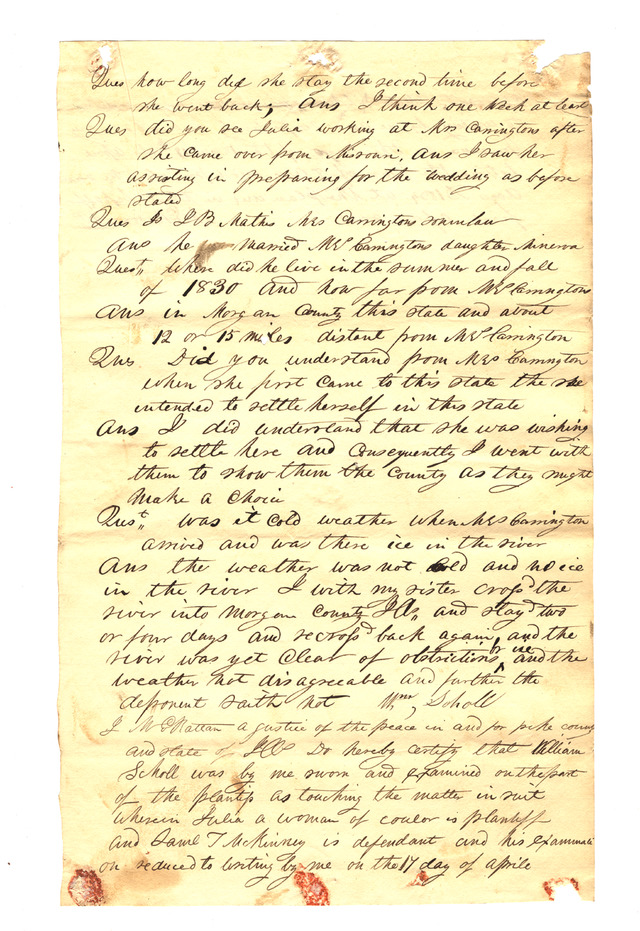 Ques how long did she stay the second time before
she went back, Ans I think one week at least
Ques did you see Julia working at Mrs Carringtons after
she came over from Missouri, Ans I saw her
assisting in prepraring for the wedding as before
stated
Ques Is J B Mathis Mrs Carringtons soninlaw
Ans he married Mrs Carringtons daughter Minerva
Quest,, Where did he live in the summer and fall
of 1830 And how far from Mrs Carringtons
Ans in Morgan County this state and about
12 or 15 miles distant from Mrs Carrington
Ques Did you understand from Mrs Carrington
when she first came to this state the she
intended to settle herself in this state
Ans I did understand that she was wishing
to settle here and Consequently I went with
them to show them the County as they might
Make a Choice
Quest,, was it Cold weather when Mrs Carrington
arrived and was there ice in the river
Ans the weather was not Cold and no ice
in the river I with my sister crossd the
river into Morgan County Ils,, and stayd two
or four days and recrossd back again, and the
river was yet Clear of obstrictions, or ice and the
weather not disagreeable and further the
deponent saith not Wm, Scholl
I McRattan a justice of the peace in and for pike county
and state of Ils Do hereby certify that William
Scholl was by me sworn and examined on the part
of the plantif as touching the matter in suit
wherein Julia a woman of couler is plantiff
and Saml T McKinney is defendant and his examinati
on reduced to writing by me on the 17 day of aprile